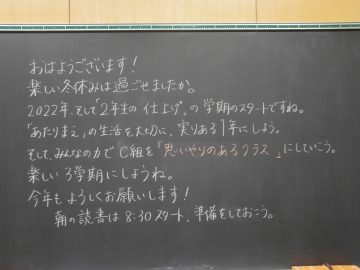 おはようございます!
楽しい冬休みは過ごせましたか。
2022年、そして「2年生の仕上げ」の学期のスタートですね。
「あたりまえ」の生活を大切に、実りある1年にしよう。
そして、みんなの力でC組を「思いやりのあるクラス」にしていこう。
楽しい3学期にしようね。
今年もよろしくお願いします!
朝の読書は8:30スタート、準備をしておこう。